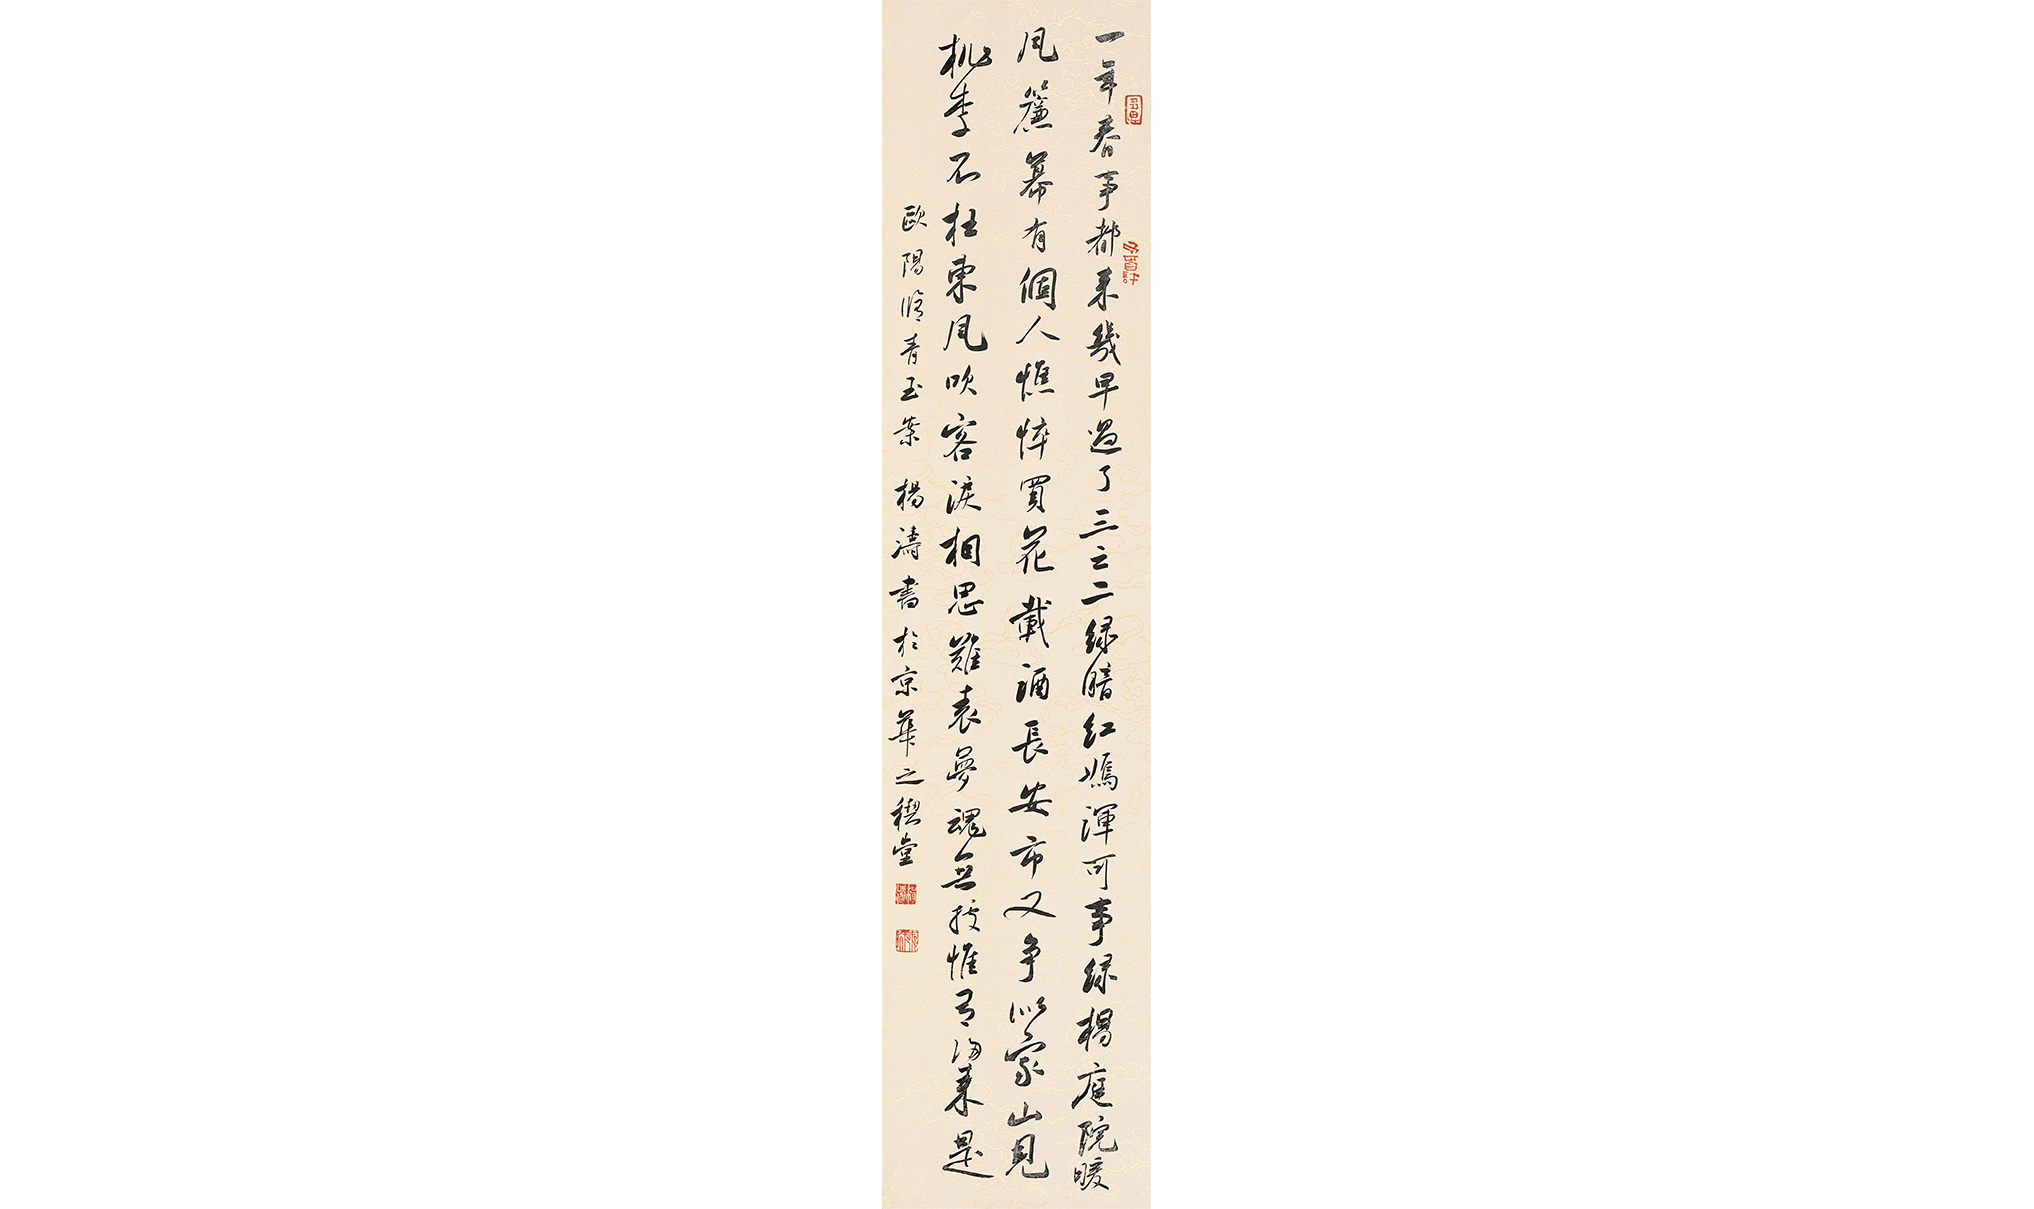 一年春事都來幾早過了三之二綠暗紅嫣渾可事綠楊庭院暖
風簾幕有個人憔悴買花載酒長安市又爭似家山見
桃李不枉東風吹客淚相思難表夢魂無據惟有歸來是
歐陽脩青玉案 楊濤書於京華之稧堂